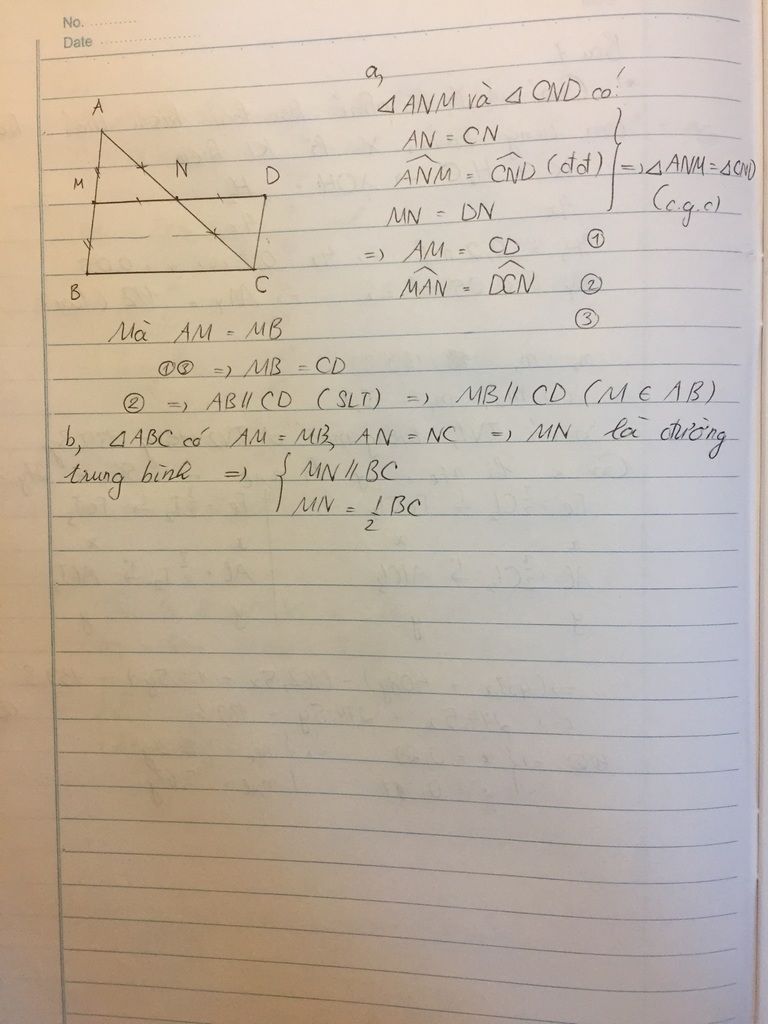 No. ..........
Date ......................
a,
△ ANM và △ CND có:
AN = CN
ANM = CND (đđ)
MN = DN
=> △ ANM = △ CND
(c.g.c)
=> AM = CD ①
MAN = DCN ②
Mà AM = MB ③
①③ => MB = CD
② => AB // CD (SLT) => MB // CD (M ∈ AB)
b, △ABC có AM = MB, AN = NC => MN là đường
trung bình => { MN // BC
MN = 1/2 BC
A
M
N
D
B
C